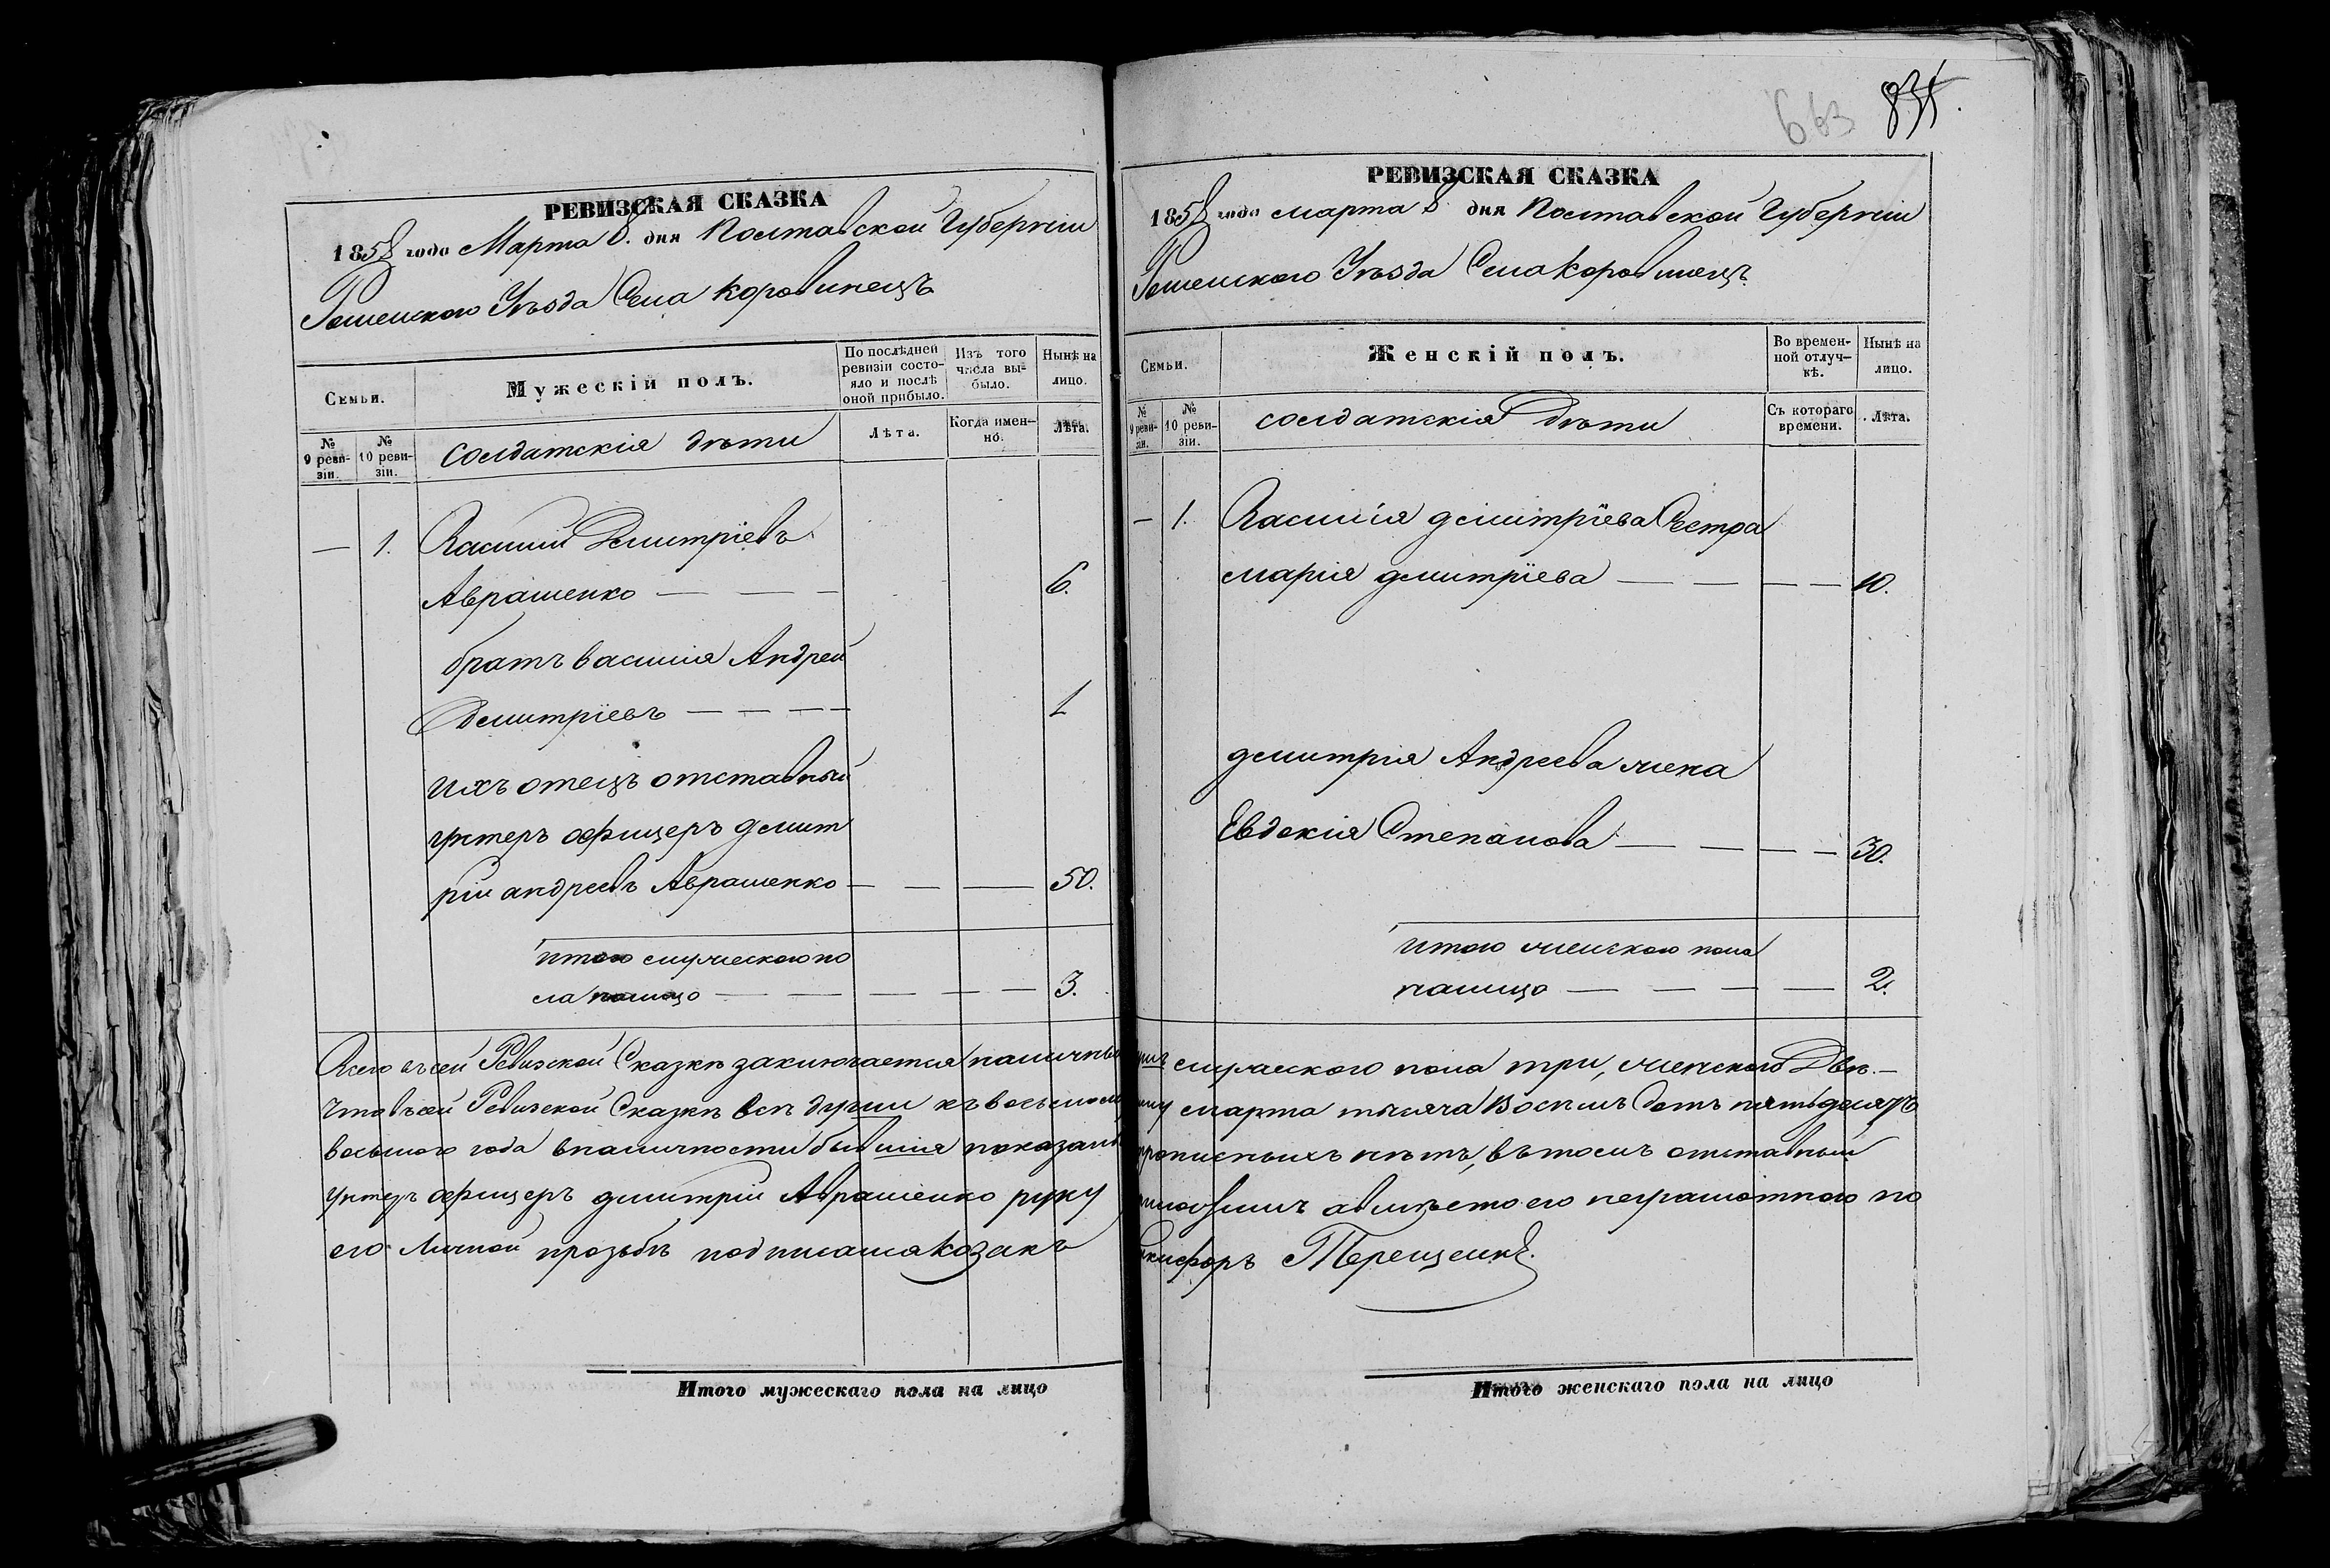 663 835.
РЕВИЗСКАЯ СКАЗКА
1858 года Марта 8. дня Полтавской Губерніи
Роменского Уѣзда Села Коровинецъ
Семьи.
Мужескій полъ.
По послѣдней ревизіи состояло и послѣ оной прибыло.
Изъ того числа выбыло.
Нынѣ на лицо.
№ 9 ревизіи.
№ 10 ревизіи.
солдатскія дѣти
Лѣта.
Когда именно.
Лѣта.
— 1. Василий Дмитріевъ
Аврашенко — — — 6.
братъ василия Андрей
Дмитріевъ — — — — 1
ихъ отецъ отставный
унтеръ офицеръ дмит
рій андреевъ Аврашенко — — — 50.
итого мужеского по
ла налицо — — — — — 3.
РЕВИЗСКАЯ СКАЗКА
1858 года марта 8 дня Полтавской Губерніи
Роменского Уѣзда Села Коровинецъ
Семьи.
Женскій полъ.
Во временной отлучкѣ.
Нынѣ на лицо.
№ 9 ревизіи.
№ 10 ревизіи.
солдатскія дѣти
Съ котораго времени.
Лѣта.
— 1. Василія дмитріева Сестра
марія дмитріева — — — — 10.
дмитрія Андреева жена
Евдокія Степанова — — — — 30.
итого женского пола
налицо — — — — 2.
Всего въ сей Ревизской Сказкѣ заключается наличныхъ мужеского пола три, женского Двѣ.—
Что въ сей Ревизской Сказкѣ всѣ души къ восьмому марта тысяча Восемь Сотъ пятьдесятъ
восьмого года вналичности бывшія показаны прописныхъ нѣтъ, въ томъ отставный
Унтеръ офицеръ дмитрій Аврашенко руку авмѣсто его неграмотного по
его личной прозьбѣ подписалъ козакъ Терещенко.
Итого мужескаго пола на лицо
Итого женскаго пола на лицо